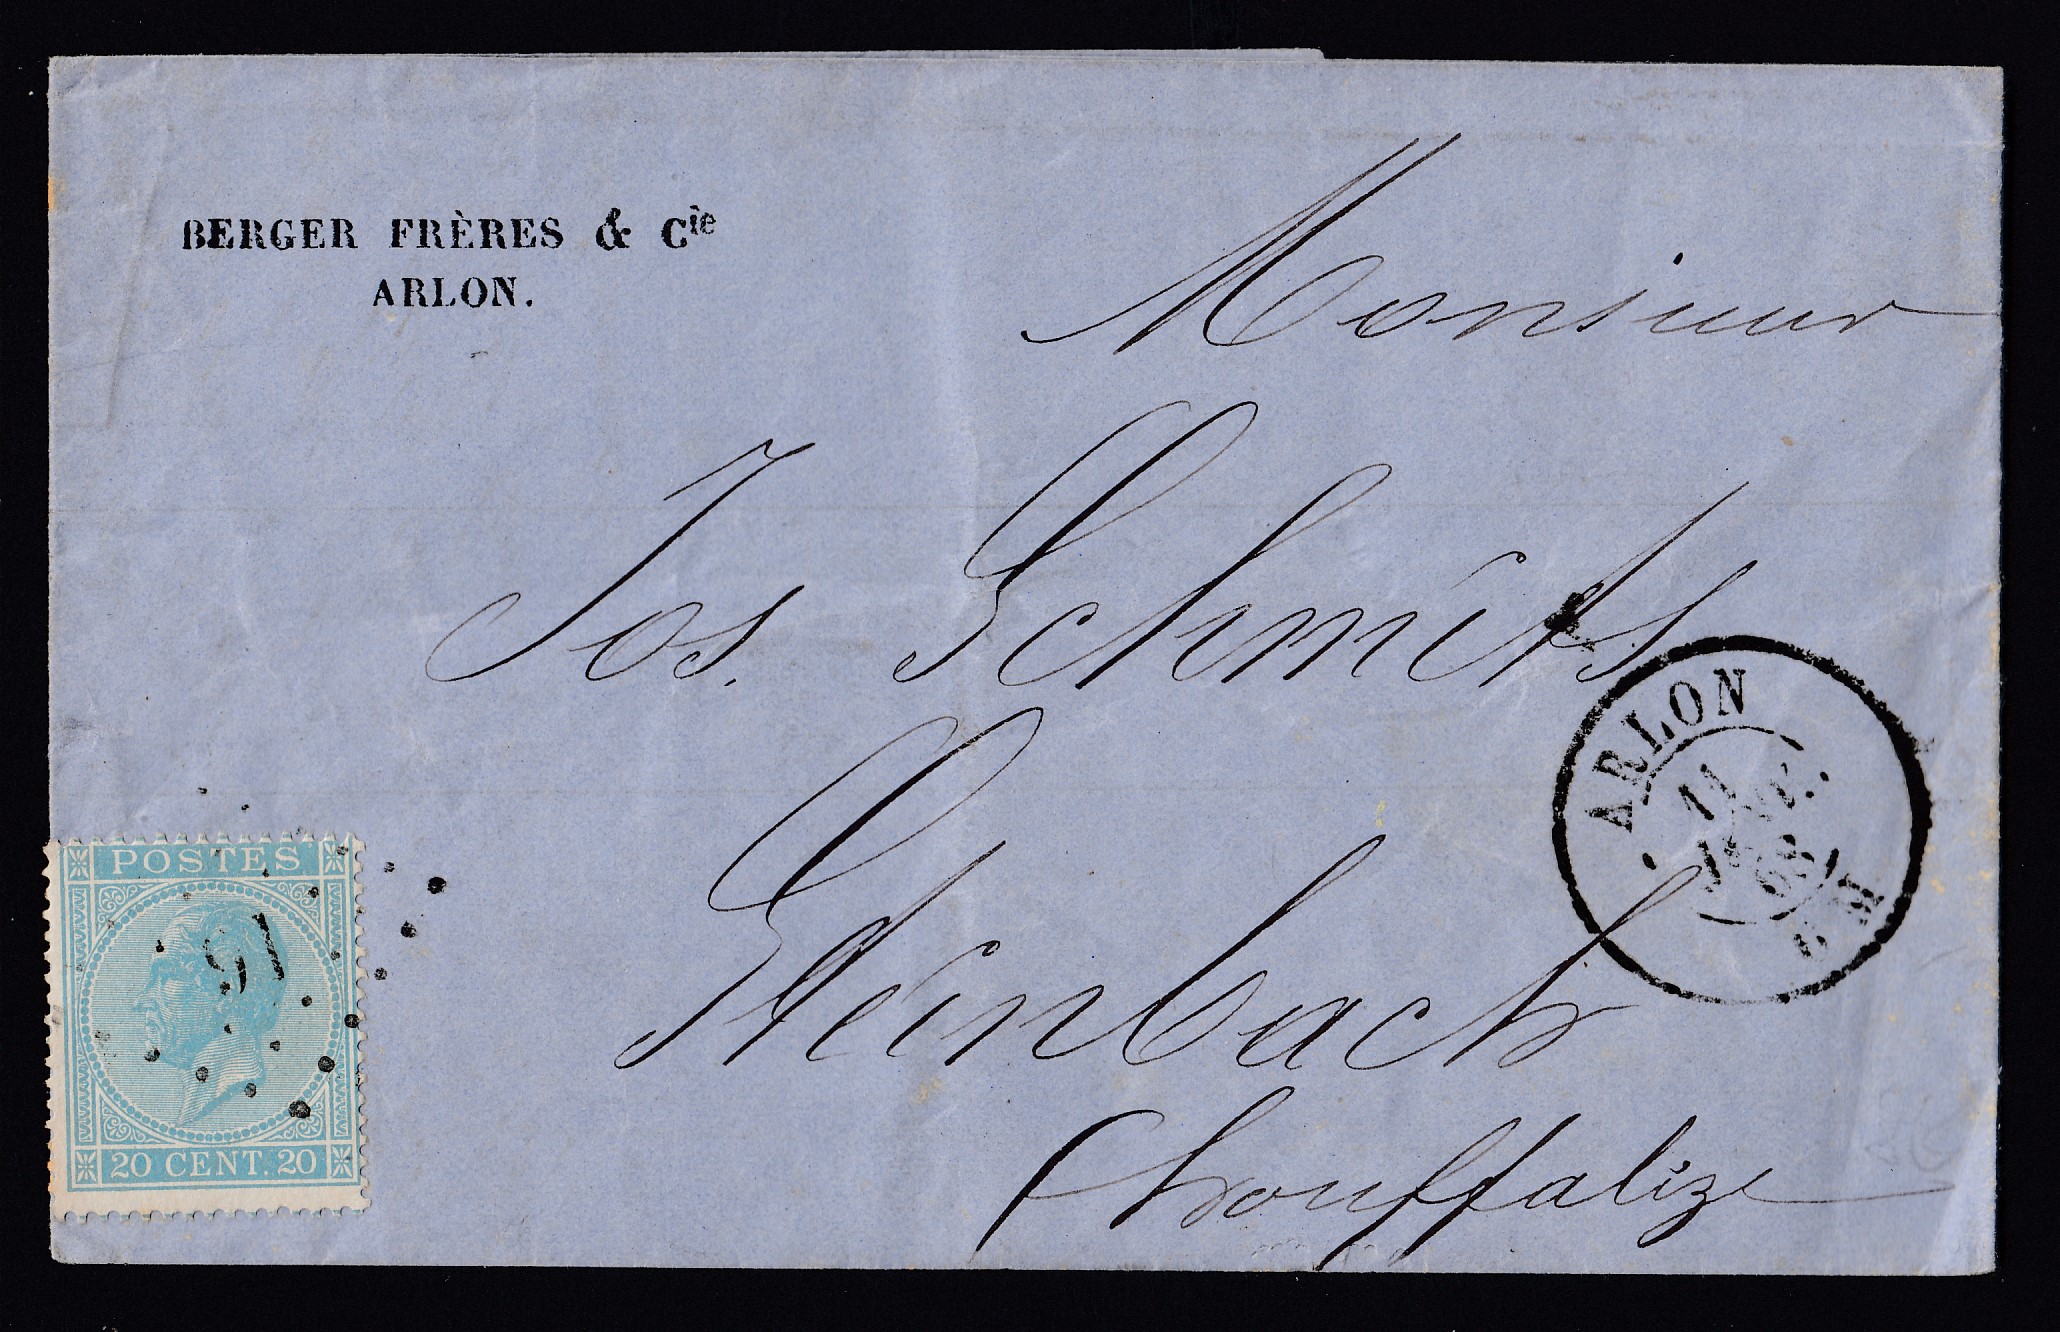 BERGER FRÈRES & Cie
ARLON.
Monsieur
Jos. Schmits
Steinbach
Houffalize
ARLON
11
JANV.
68
POSTES
16
20 CENT. 20